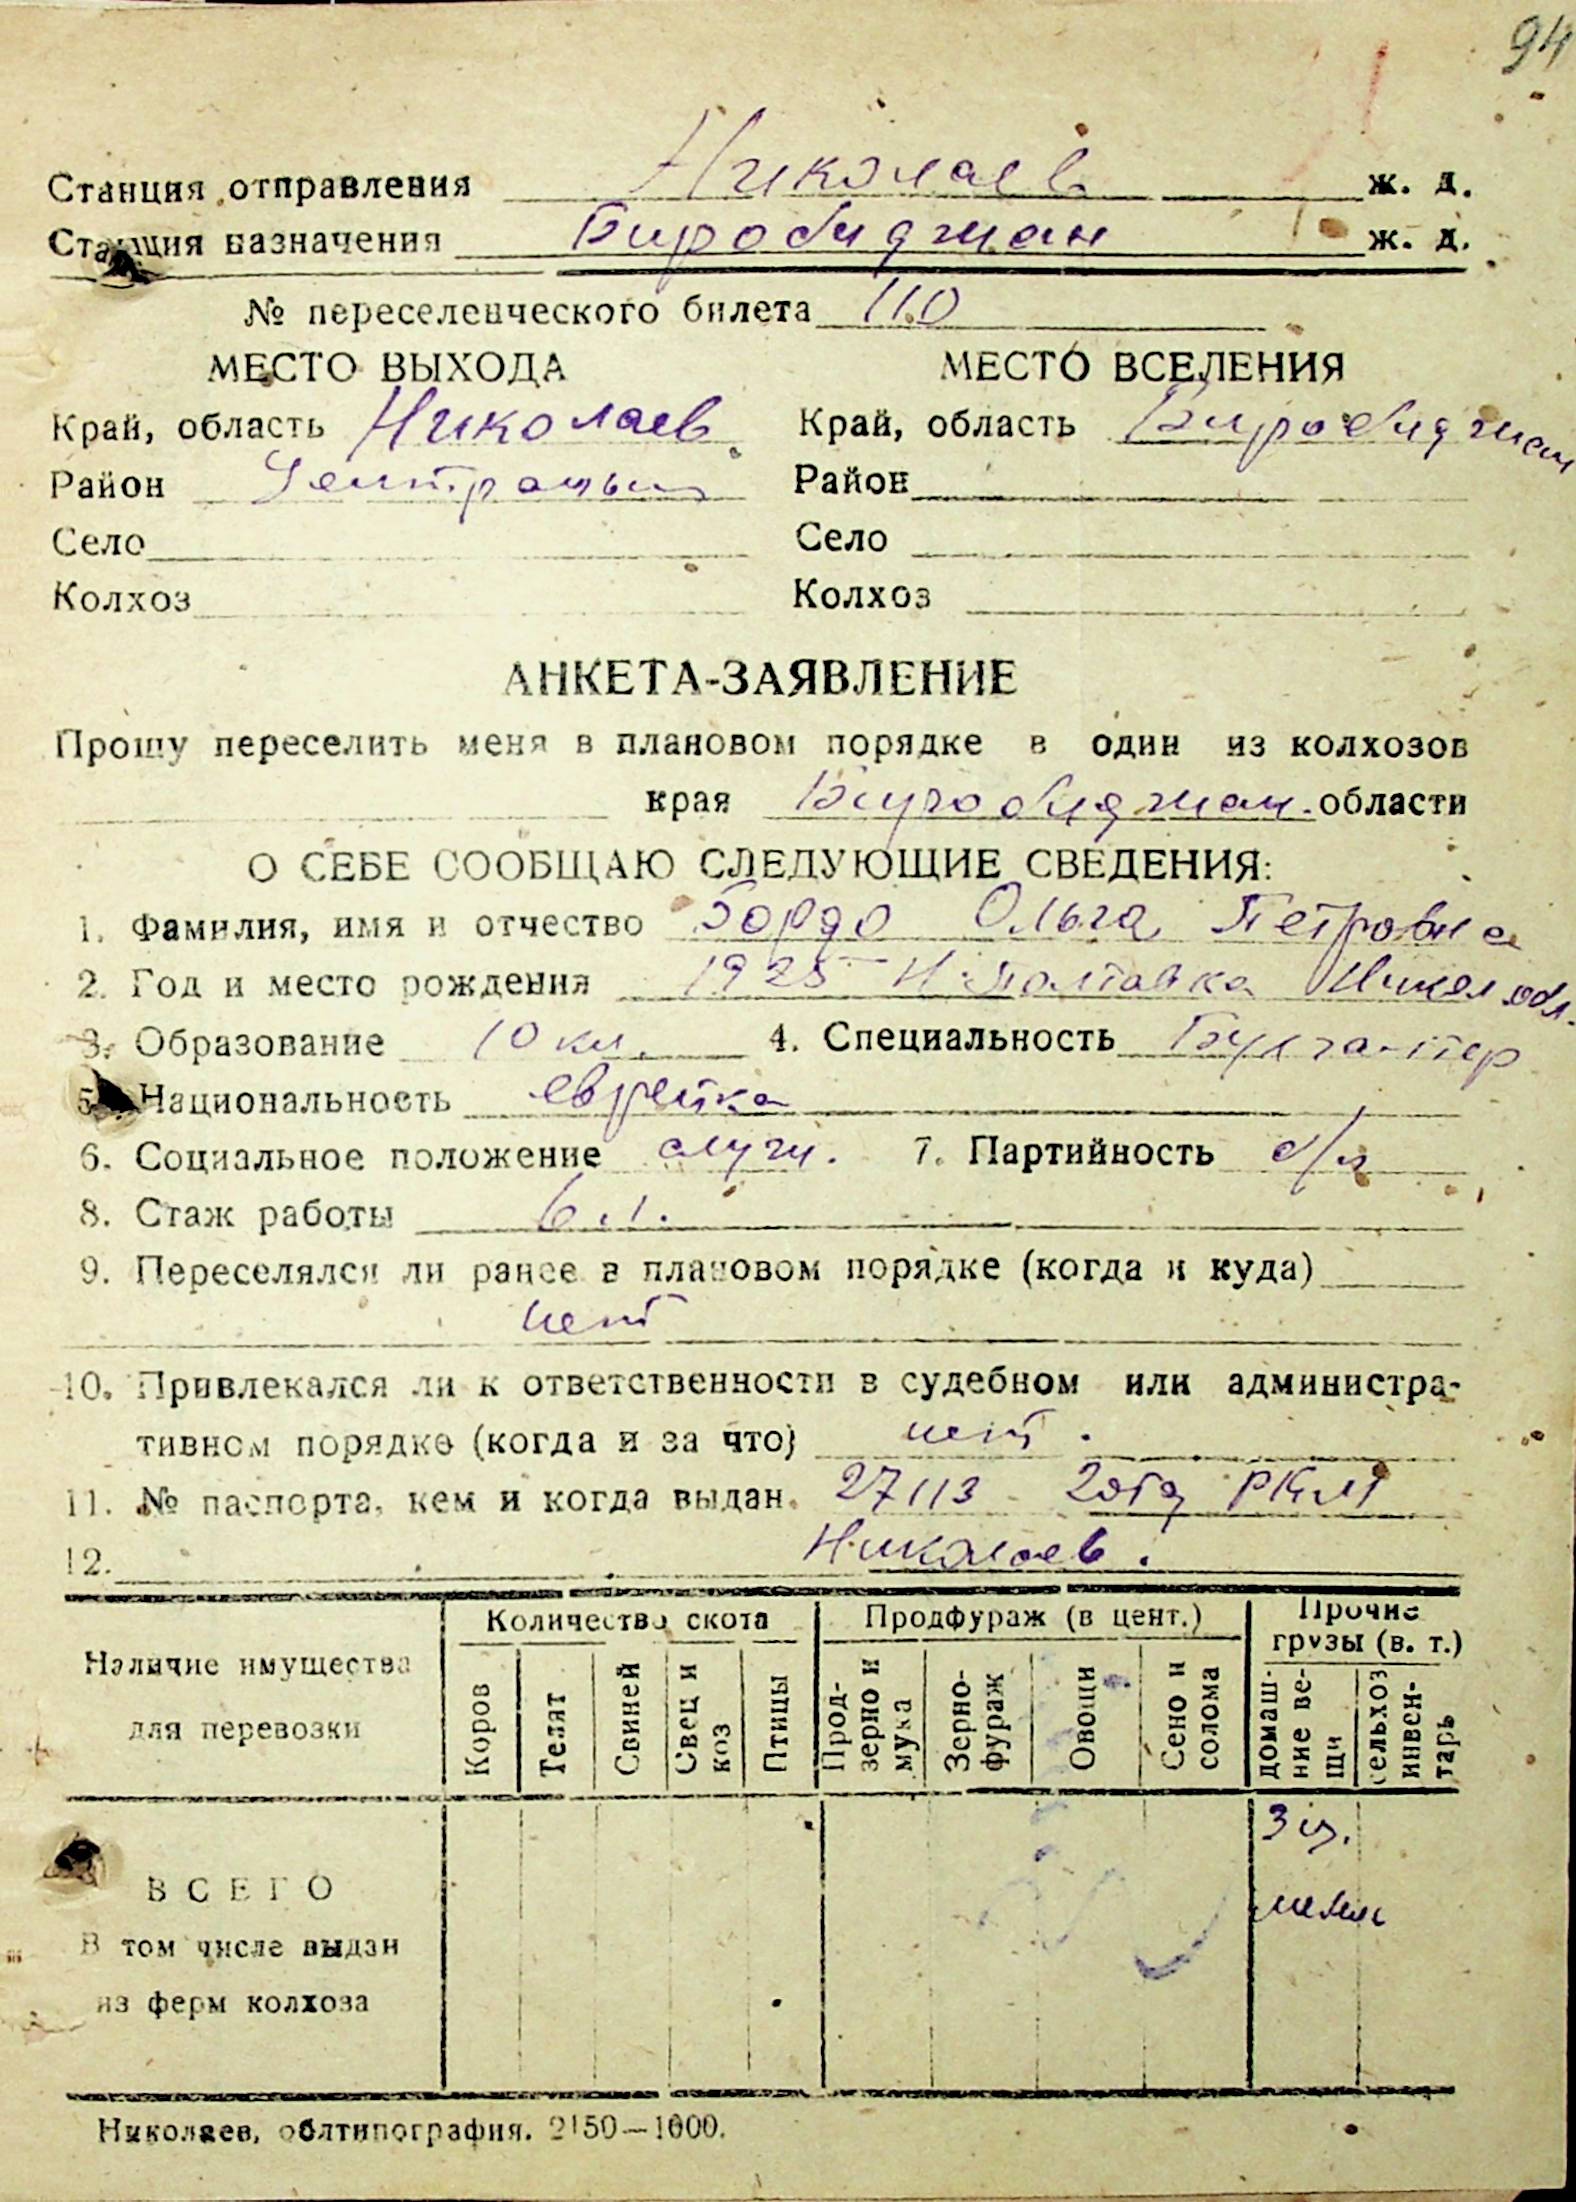 94
Станция отправления Николаев ж. д.
Станция назначения Биробиджан ж. д.
№ переселенческого билета 110
МЕСТО ВЫХОДА МЕСТО ВСЕЛЕНИЯ
Край, область Николаев Край, область Биробиджан
Район Центральн Район
Село Село
Колхоз Колхоз
АНКЕТА-ЗАЯВЛЕНИЕ
Прошу переселить меня в плановом порядке в один из колхозов
края Биробиджан. области
О СЕБЕ СООБЩАЮ СЛЕДУЮЩИЕ СВЕДЕНИЯ:
1. Фамилия, имя и отчество Бордо Ольга Петровна
2. Год и место рождения 1925 Н-Полтавка Никол обл.
3. Образование 10 кл. 4. Специальность Бухгалтер
5. Национальность еврейка
6. Социальное положение служ. 7. Партийность б/п
8. Стаж работы 6 л.
9. Переселялся ли ранее в плановом порядке (когда и куда)
нет
10. Привлекался ли к ответственности в судебном или администра-
тивном порядке (когда и за что) нет.
11. № паспорта, кем и когда выдан. 27113 2отд РКМ
12. Николаев.
Количество скота Продфураж (в цент.) Прочие грузы (в. т.)
Наличие имущества для перевозки Коров Телят Свиней Овец и коз Птицы Прод-зерно и мука Зерно-фураж Овощи Сено и солома домаш-ние ве-щи сельхоз инвен-тарь
3 ц.
ВСЕГО
В том числе выдан
из ферм колхоза
Николаев, облтипография. 2150—1000.